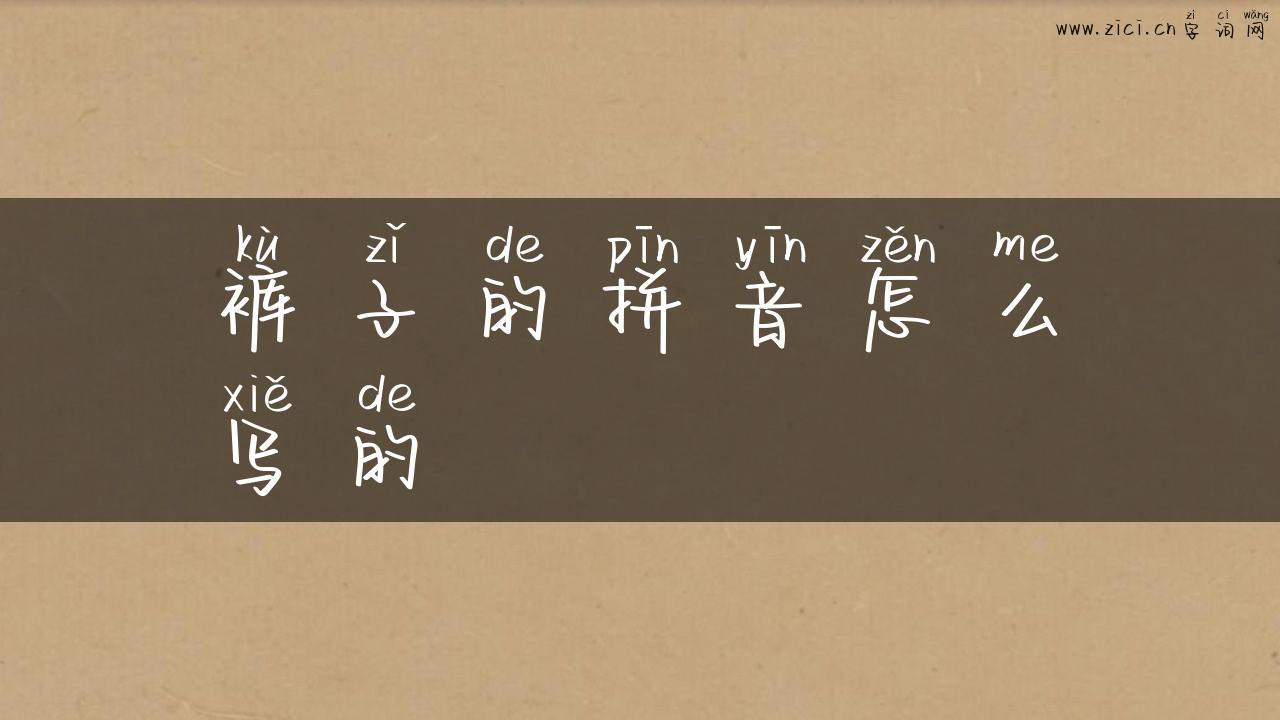 zì cí wǎng
www.zici.cn 字 词 网
kù zǐ de pīn yīn zěn me
裤 子 的 拼 音 怎 么
xiě de
写 的